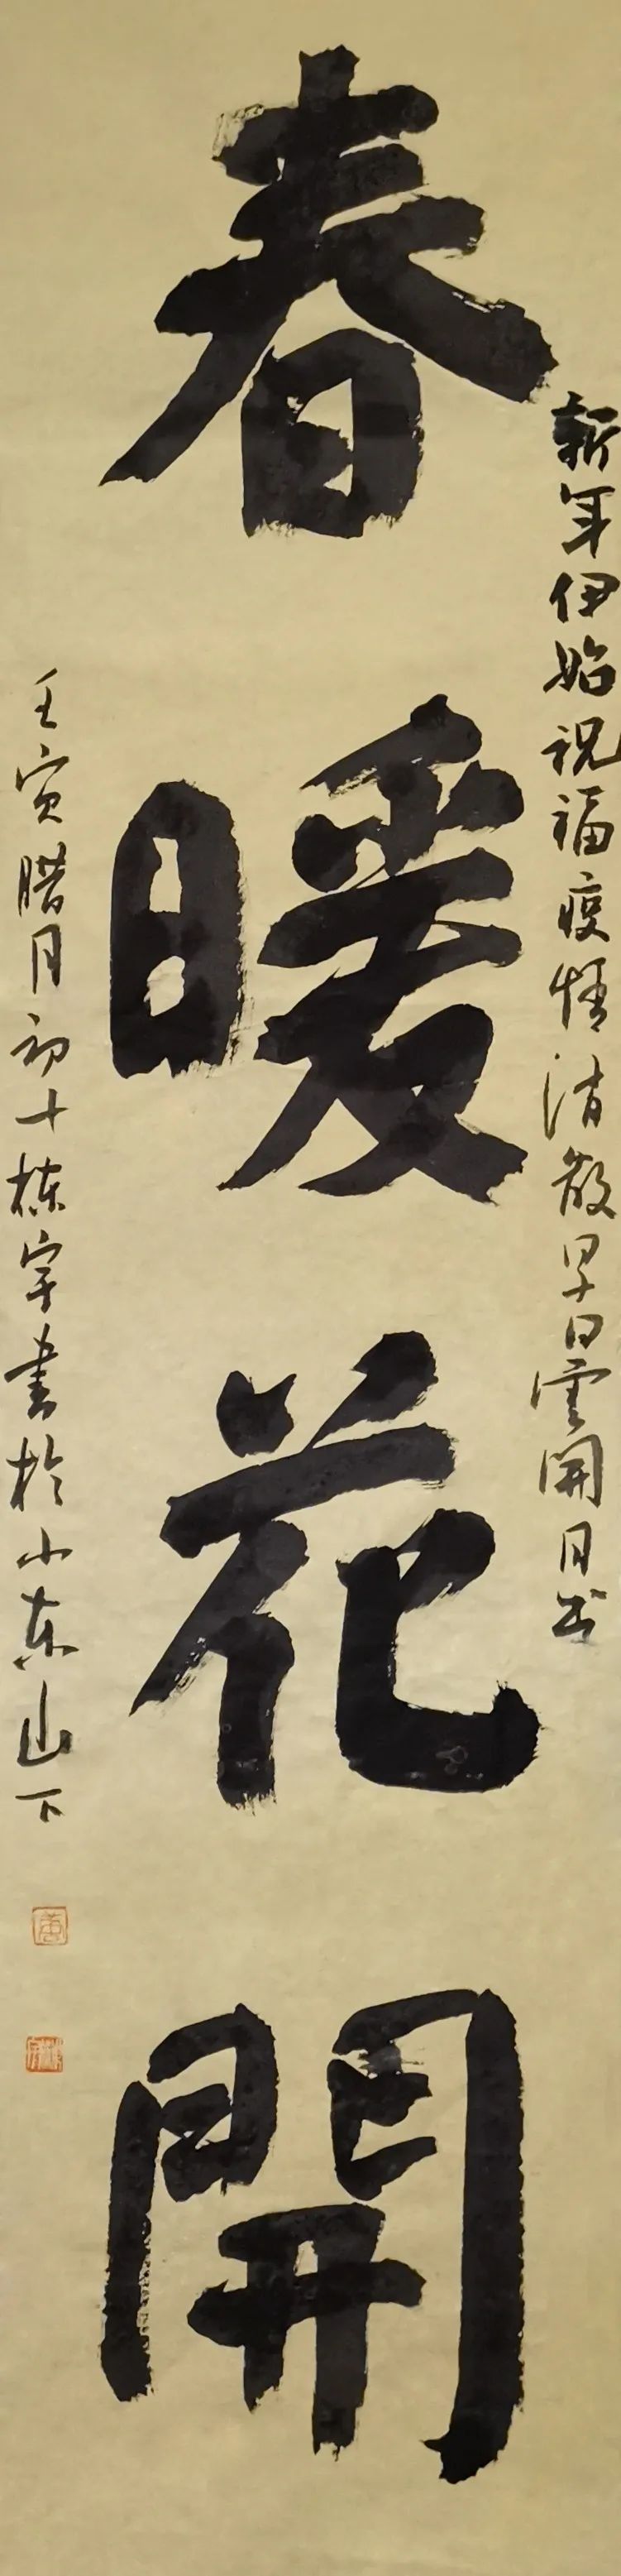 新年伊始祝福疫情消散早日雲開月出
春暖花開
壬寅腊月初十栋宇書於小东山下